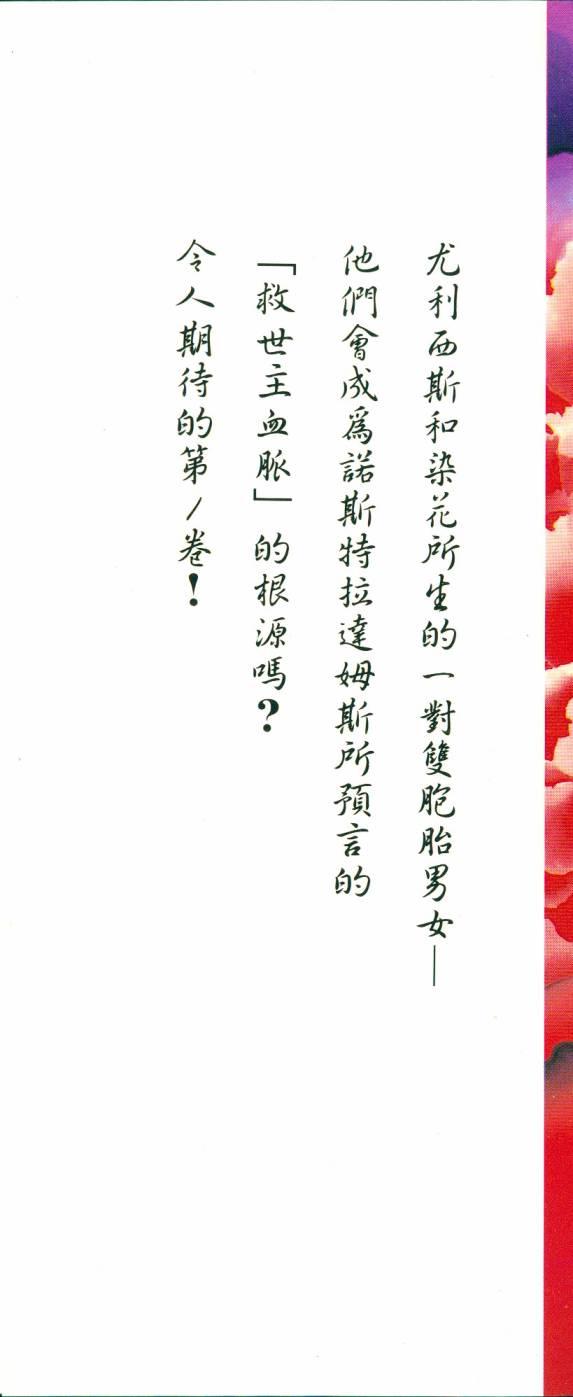 尤利西斯和染花所生的一對雙胞胎男女—
他們會成爲諾斯特拉達姆斯所預言的
「救世主血脈」的根源嗎？
令人期待的第1卷！